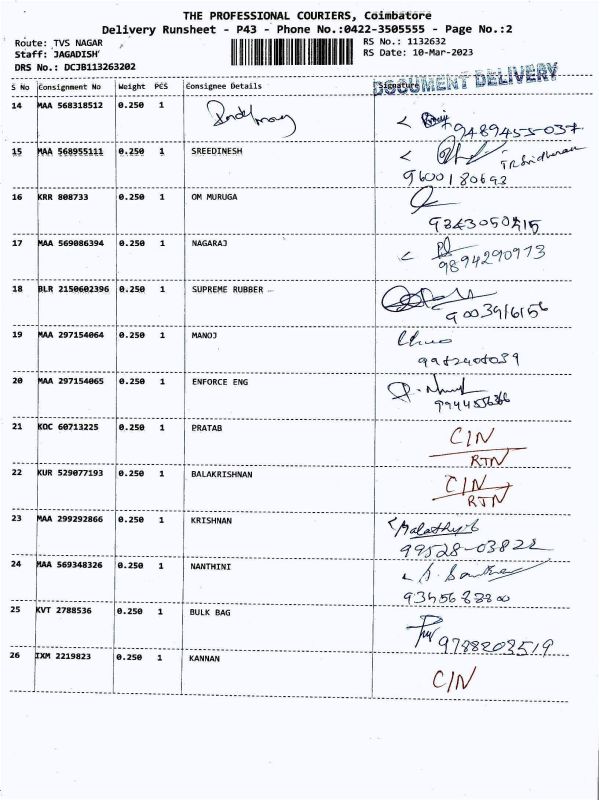 THE PROFESSIONAL COURIERS, Coimbatore
Delivery Runsheet - P43 - Phone No.:0422-3505555 - Page No.:2
Route: TVS NAGAR
Staff: JAGADISH
DRS No.: DCJB113263202
RS No.: 1132632
RS Date: 10-Mar-2023
DOCUMENT DELIVERY
S No Consignment No Weight PCS Consignee Details Signature
14 MAA 568318512 0.250 1
9489455-037
15 MAA 568955111 0.250 1 SREEDINESH
TR Sridharan
9600180693
16 KRR 808733 0.250 1 OM MURUGA
9843050415
17 MAA 569086394 0.250 1 NAGARAJ
9894290973
18 BLR 2150602396 0.250 1 SUPREME RUBBER
9003916156
19 MAA 297154064 0.250 1 MANOJ
20 MAA 297154065 0.250 1 ENFORCE ENG
21 KOC 60713225 0.250 1 PRATAB
CIN
RTN
22 KUR 529077193 0.250 1 BALAKRISHNAN
CIN
RTN
23 MAA 299292866 0.250 1 KRISHNAN
Malathy
99528-03822
24 MAA 569348326 0.250 1 NANTHINI
25 KVT 2788536 0.250 1 BULK BAG
9788203519
26 IXM 2219823 0.250 1 KANNAN
CIN